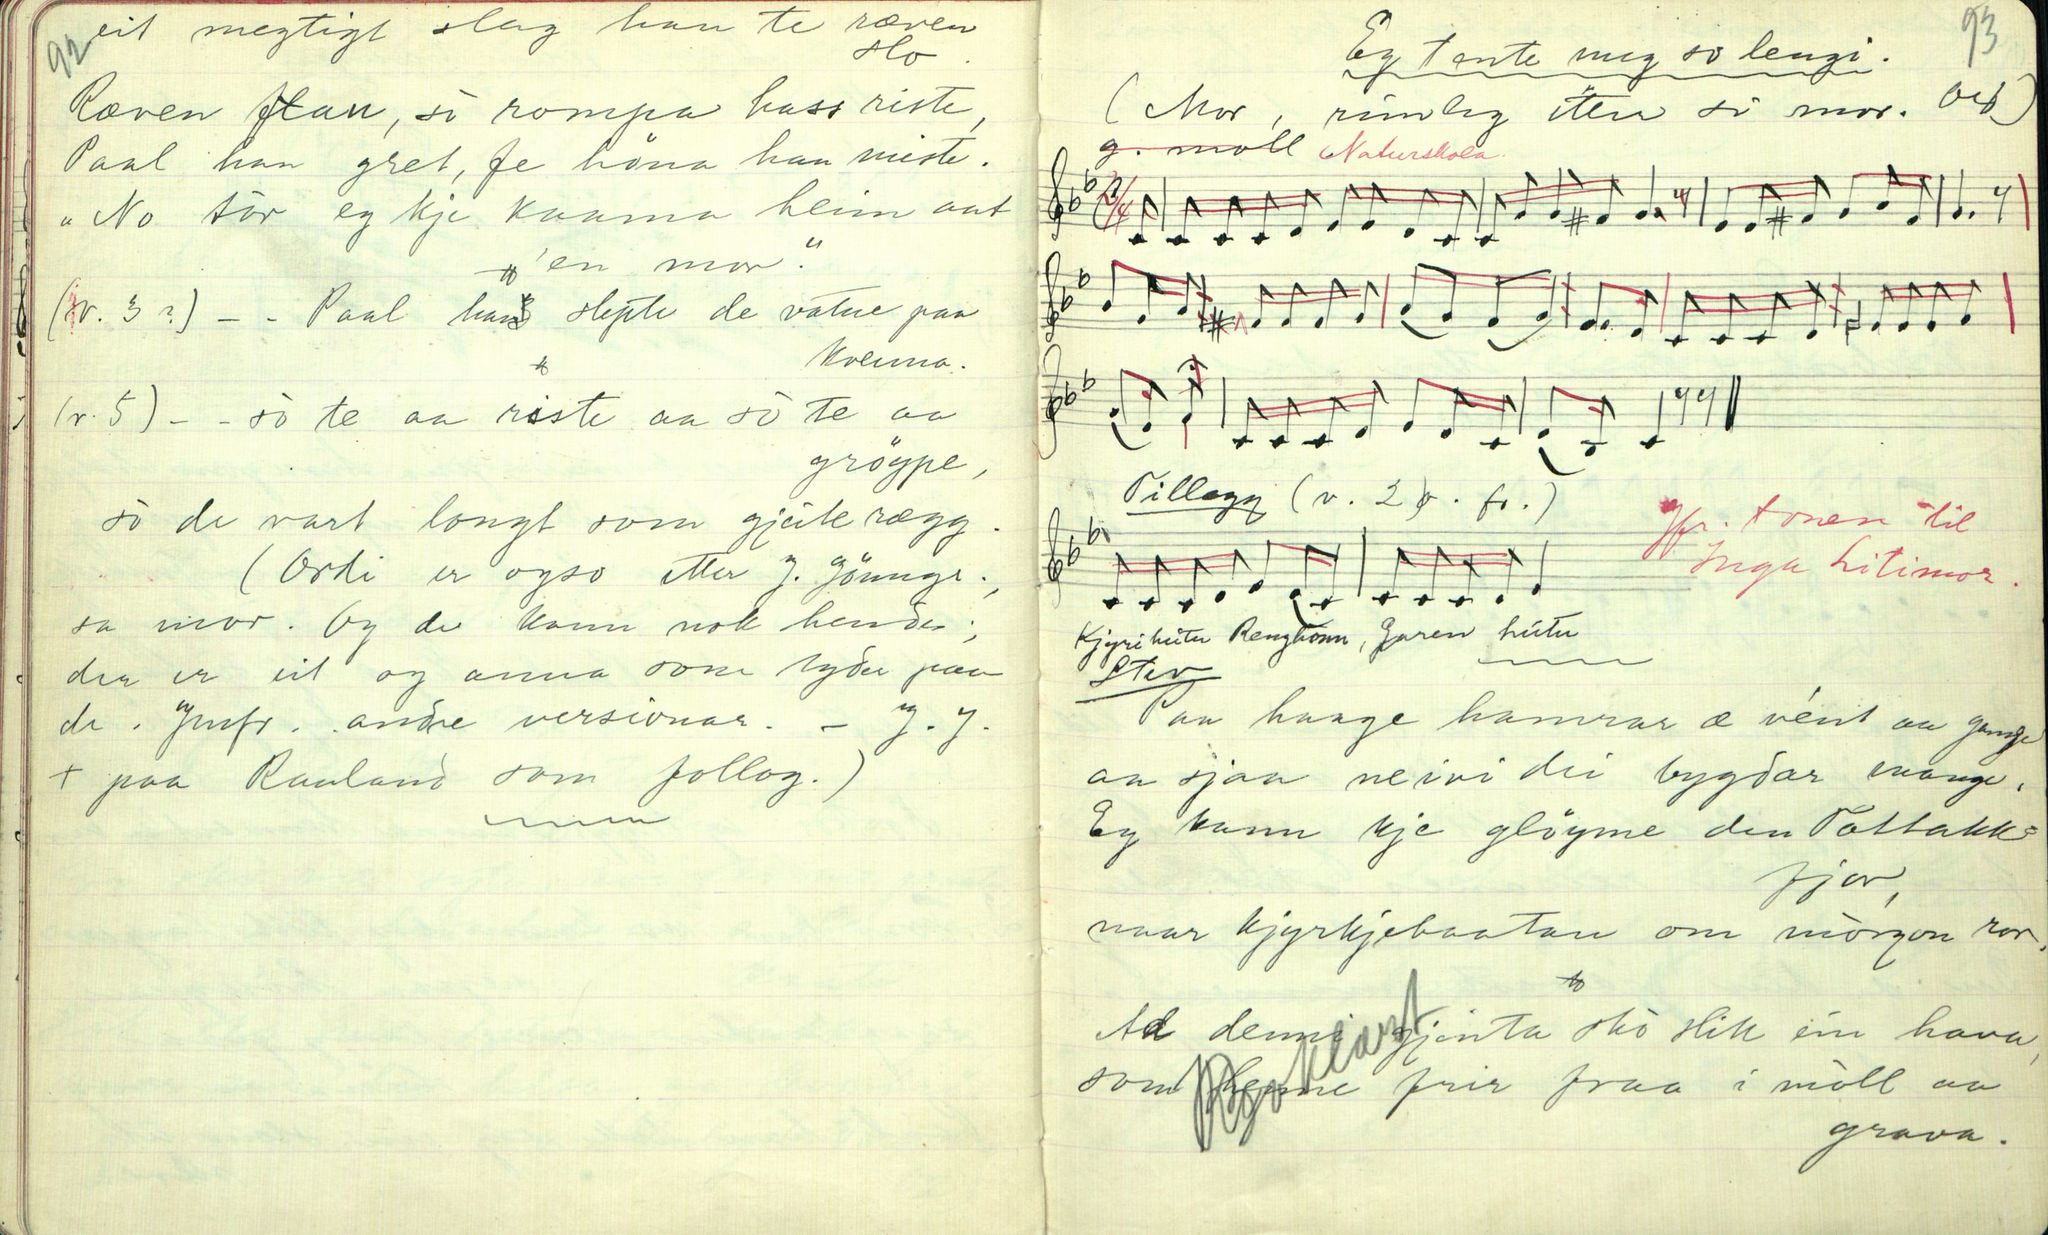 92
eit megtigt slag han te ræven
slo.
Ræven flau, so rompa hass riste,
Paal han gret, fe höna han miste.
"No tör eg kje kaama heim aat
'en mor."
(v. 3 ?) - - Paal han slepte de vatne paa
kvenna.
(v. 5) - - so te aa riste aa so te aa
gröype,
so de vart longt som gjeiterægg.
(Ordi er ogso etter J.
sa mor. Og de kann nok hende;
der er eit og anna som tyder paa
de. Jmfr. andre versionar. - J. J.
+ paa Rauland som folkog.)
93
Eg tente meg so lengi.
(Mor, rimleg etter si mor.
g. moll Naturskola.
2/4
Tillegg (v. 2 o. fr.)
Jfr. tonen til
Inga Litimor.
Kjyri heiter Renghonn, Garen heiter
Stev
Paa haage hamrar æ vént aa gange
aa sjaa neivi dei bygdar mange.
Eg kann kje glöyme den Tottakk=
fjor,
naar kjyrkjebaatan om mòrgon ror.
Ad denni gjenta sko slik ein hava,
som henne frir fraa i mòll aa
grava.
Boklaust